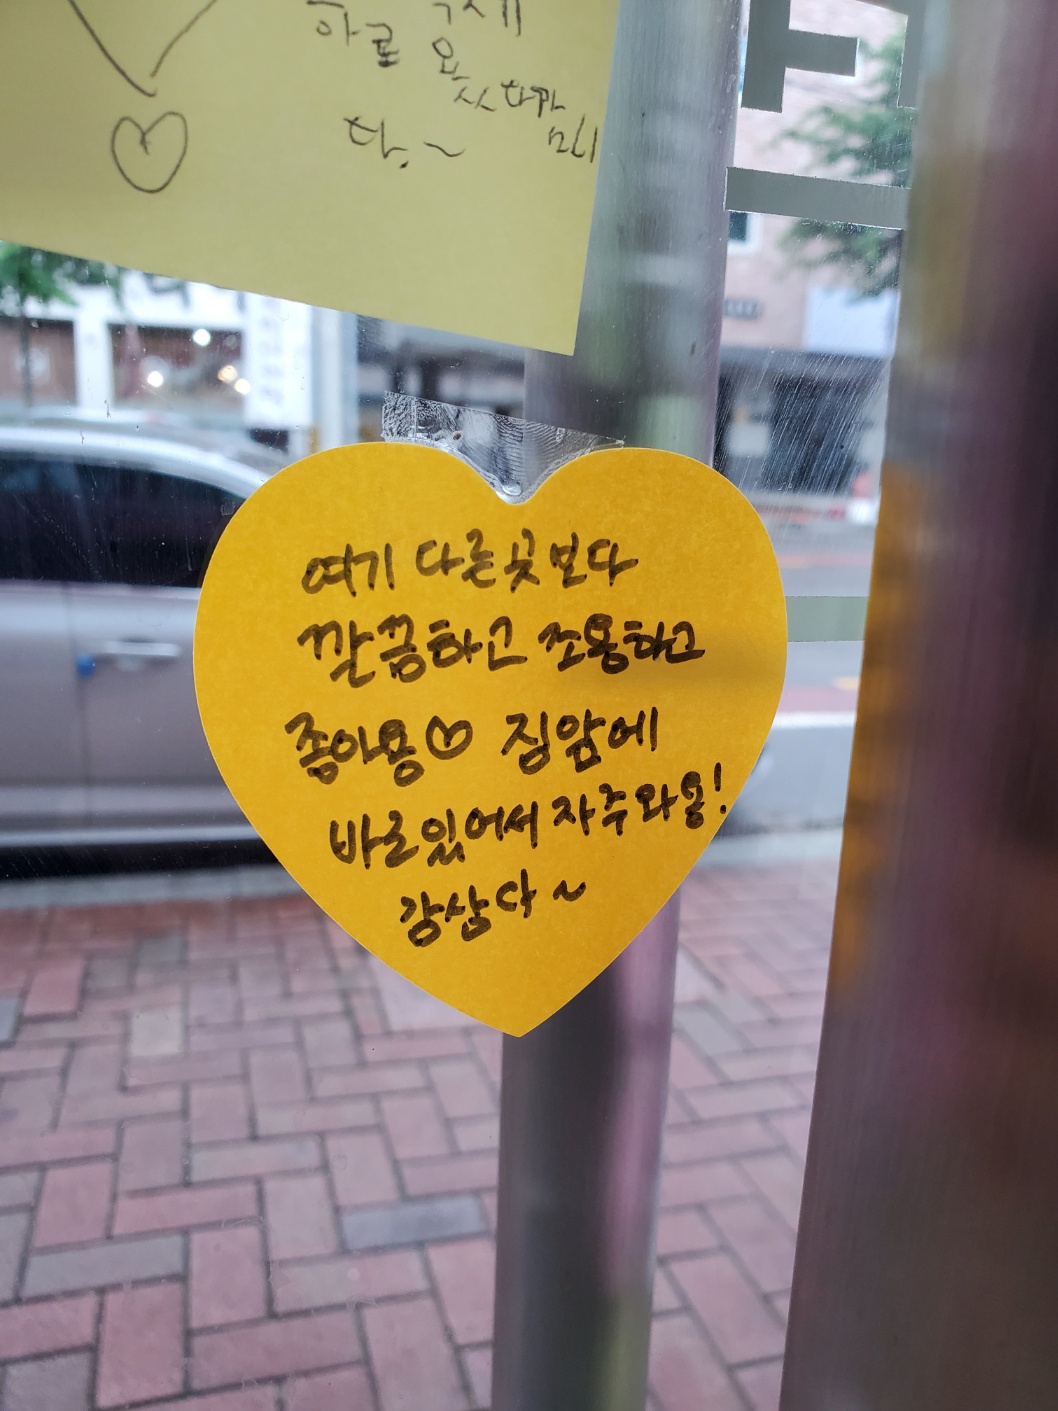 하루
타.~
여기 다른 곳보다
깔끔하고 조용하고
좋아용♡ 집앞에
바로있어서 자주와용!
강상다~